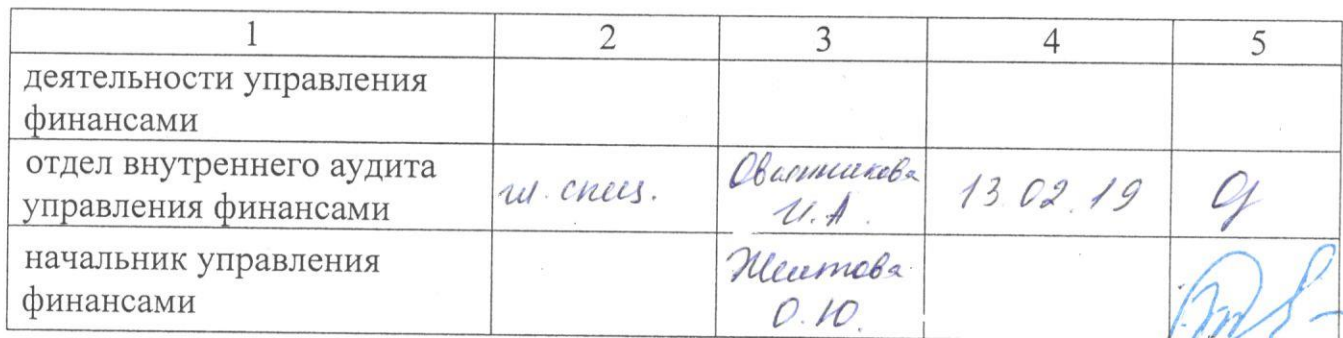 1 2 3 4 5
деятельности управления
финансами
отдел внутреннего аудита
управления финансами
гл. спец.
Овчинникова
И.А.
13.02.19
начальник управления
финансами
О.Ю.